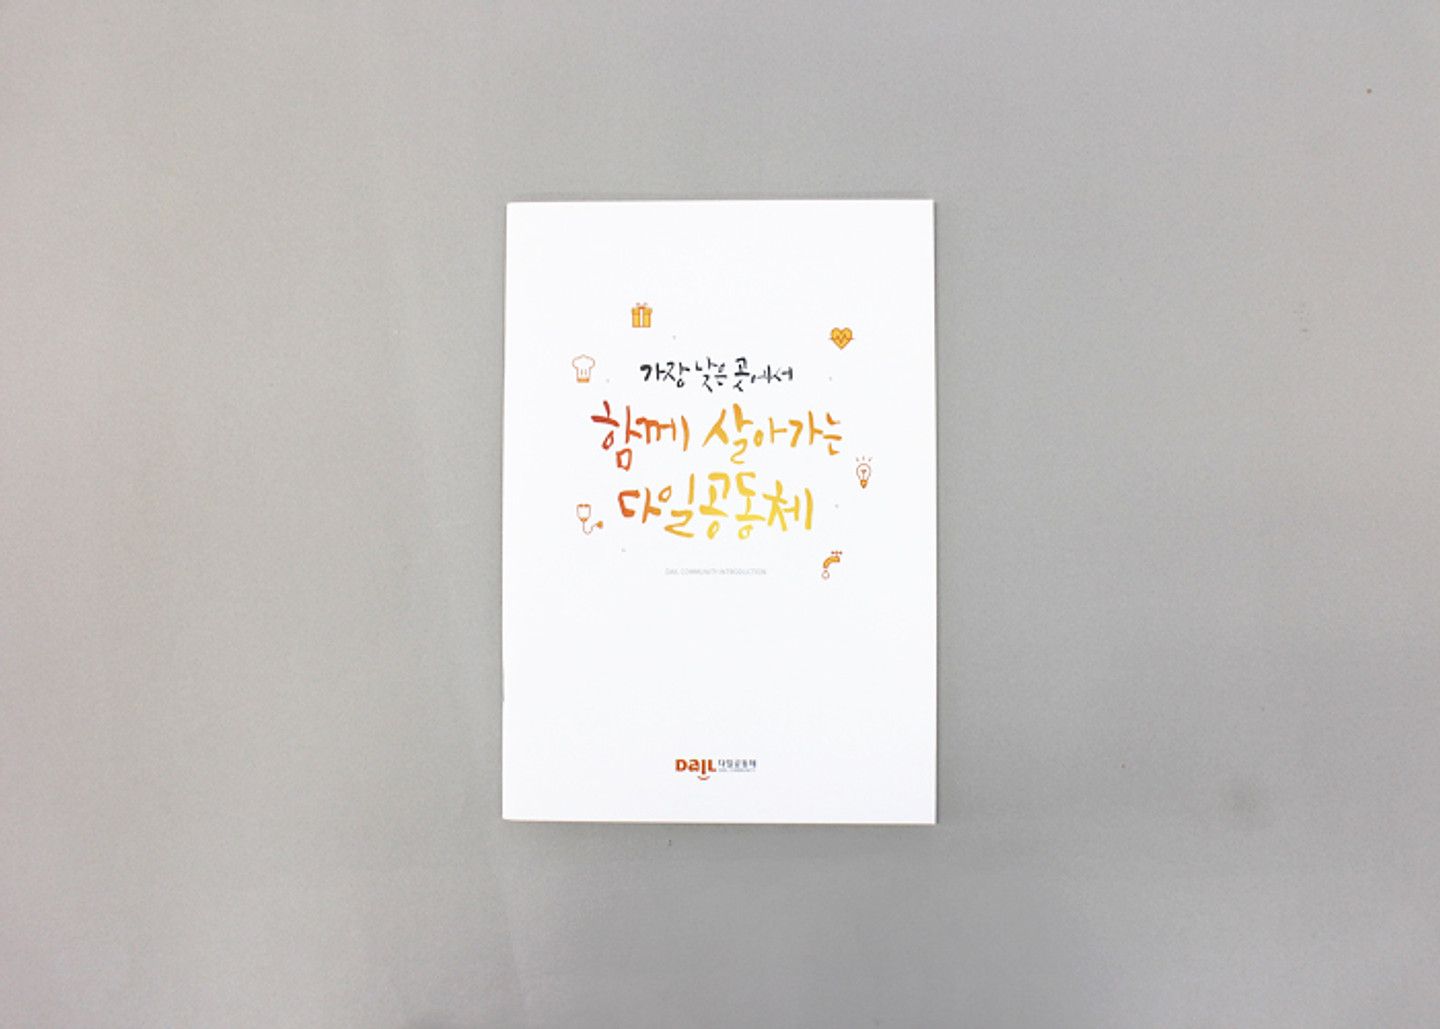 가장 낮은 곳에서
함께 살아가는
다일공동체
DAIL COMMUNITY INTRODUCTION
DAIL 다일공동체
DAIL COMMUNITY